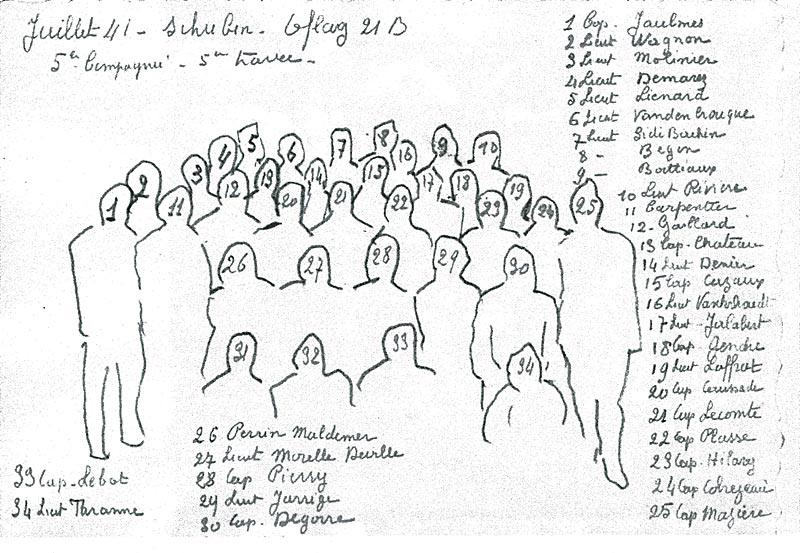 Juillet 41 - Schubin - Oflag 21 B
5e Compagnie - 5e travée -
1 Cap. Jaulmes
2 Lieut Wagnon
3 Lieut Molinier
4 Lieut Demarez
5 Lieut Lienard
6 Lieut Vandenbrouque
7 Lieut Sidi
8 - Begon
9 - Bottiaux
10 Lieut Rivière
11 Carpentier
12 - Gaillard
13 Cap. Chateau
14 Lieut Denier
15 Cap Cerzaux
16 Lieut
17 Lieut - Jalabert
18 Cap. Gendre
19 Lieut Laffrat
20 Cap
21 Cap Lecomte
22 Cap Plasse
23 Cap. Hilary
24 Cap
25 Cap Mazière
26 Perrin Maldemer
27 Lieut Morelle
28 Cap Pierry
29 Lieut Jarrige
30 Cap. Degorre
33 Cap. Lebot
34 Lieut Tharanne
1
2
3
4
5
6
7
8
9
10
11
12
13
14
15
16
17
18
19
20
21
22
23
24
25
26
27
28
29
30
31
32
33
34